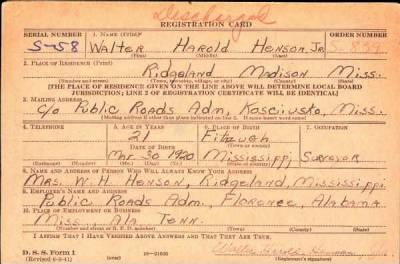 Discharged
REGISTRATION CARD
SERIAL NUMBER 1. NAME (Print) ORDER NUMBER
S-58 Walter Harold Henson, Jr. S-859
(First) (Middle) (Last)
2. PLACE OF RESIDENCE (Print)
Ridgeland Madison Miss.
(Number and street) (Town, township, village, or city) (County) (State)
[THE PLACE OF RESIDENCE GIVEN ON THE LINE ABOVE WILL DETERMINE LOCAL BOARD
JURISDICTION; LINE 2 OF REGISTRATION CERTIFICATE WILL BE IDENTICAL]
3. MAILING ADDRESS
c/o Public Roads Adm, Kosciusko, Miss.
[Mailing address if other than place indicated on line 2. If same insert word same]
4. TELEPHONE 5. AGE IN YEARS 6. PLACE OF BIRTH 7. OCCUPATION
21
DATE OF BIRTH
Mar 30 1920 Mississippi Surveyor
(Exchange) (Number) (Mo.) (Day) (Yr.) (State or country)
8. NAME AND ADDRESS OF PERSON WHO WILL ALWAYS KNOW YOUR ADDRESS
Mrs. W. H. Henson, Ridgeland, Mississippi
9. EMPLOYER'S NAME AND ADDRESS
Public Roads Adm. Florence, Alabama
10. PLACE OF EMPLOYMENT OR BUSINESS
Miss. Ala Tenn.
(Number and street or R. F. D. number) (Town) (County) (State)
I AFFIRM THAT I HAVE VERIFIED ABOVE ANSWERS AND THAT THEY ARE TRUE.
D. S. S. Form 1
Walter Harold Henson